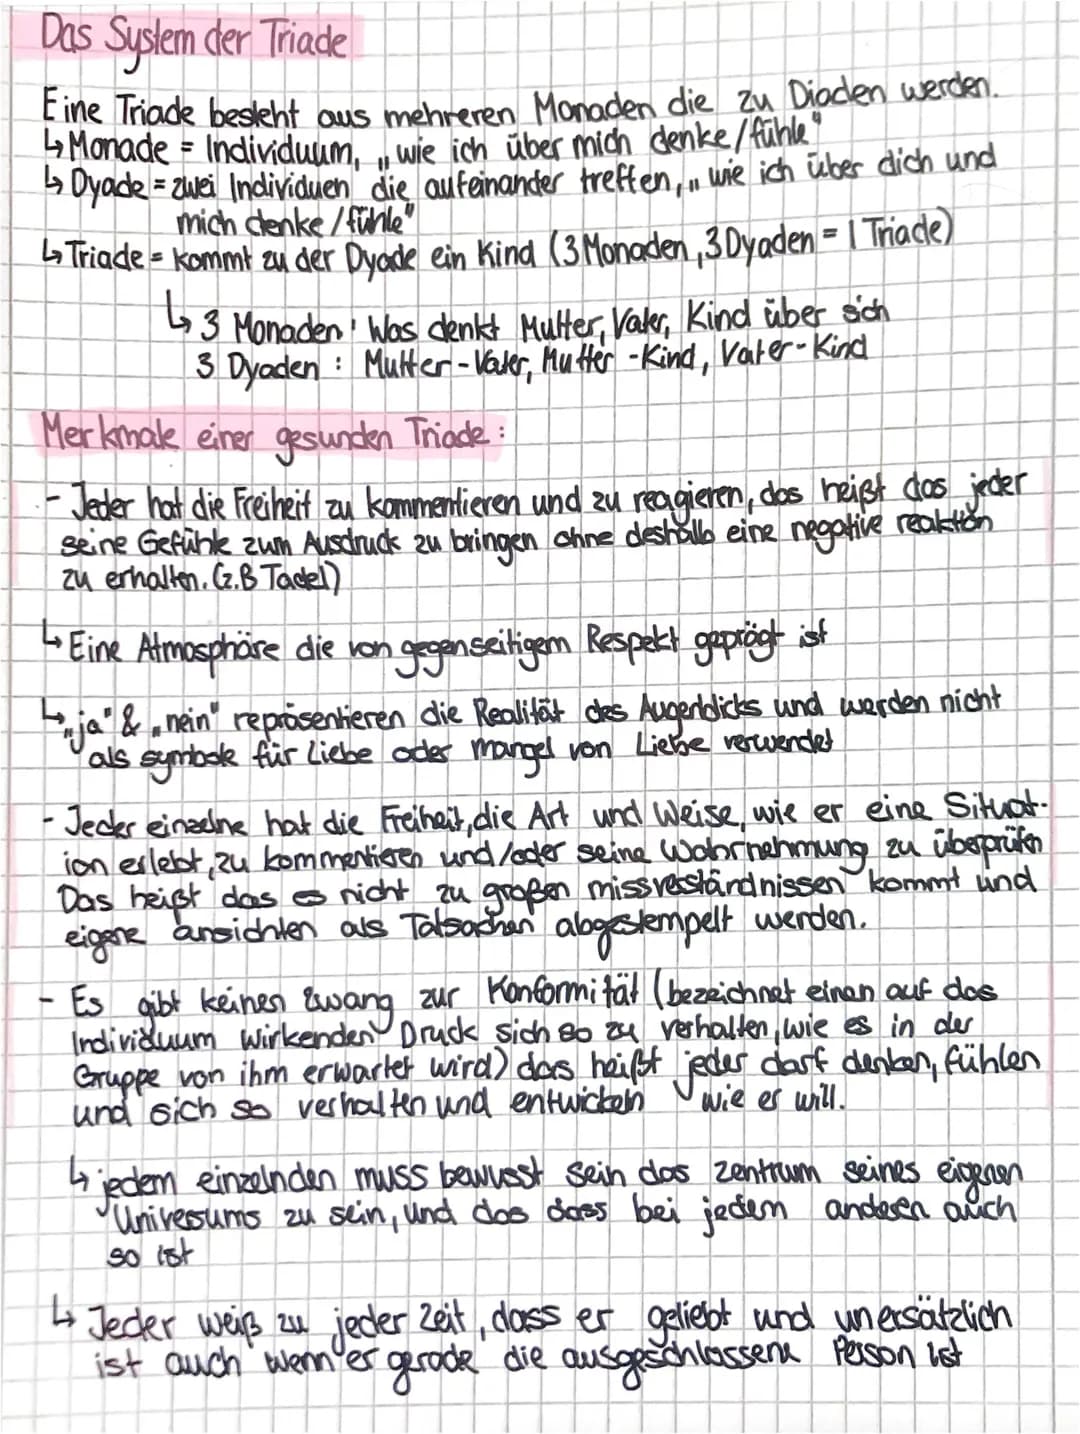 Das System der Triade
Eine Triade besteht aus mehreren Monaden die zu Diaden werden.
↳ Monade = Individuum, „wie ich über mich denke/fühle"
↳ Dyade = zwei Individuen die aufeinander treffen, „wie ich über dich und
mich denke/fühle"
↳ Triade = kommt zu der Dyade ein Kind (3 Monaden, 3 Dyaden = 1 Triade)
↳ 3 Monaden: Was denkt Mutter, Vater, Kind über sich
3 Dyaden: Mutter-Vater, Mutter-Kind, Vater-Kind
Merkmale einer gesunden Triade:
- Jeder hat die Freiheit zu kommentieren und zu reagieren, das heißt das jeder
seine Gefühle zum Ausdruck zu bringen ohne deshalb eine negative reaktion
zu erhalten. (z.B Tadel)
↳ Eine Atmosphäre die von gegenseitigem Respekt geprägt ist
↳ „ja" & „nein" repräsentieren die Realität des Augenblicks und werden nicht
als symbole für Liebe oder mangel von Liebe verwendet
- Jeder einzelne hat die Freiheit, die Art und Weise, wie er eine Situat-
ion erlebt, zu kommentieren und/oder seine Wahrnehmung zu überprüfen
Das heißt das es nicht zu großen missverständnissen kommt und
eigene ansichten als Tatsachen abgestempelt werden.
- Es gibt keinen Zwang zur Konformität (bezeichnet einen auf das
Individuum Wirkenden Druck sich so zu verhalten, wie es in der
Gruppe von ihm erwartet wird) das heißt jeder darf denken, fühlen
und sich so verhalten und entwickeln wie er will.
↳ jedem einzelnden muss bewusst sein das zentrum seines eigenen
Universums zu sein, und das dass bei jedem anderen auch
so ist
↳ Jeder weiß zu jeder Zeit, dass er geliebt und unersätzlich
ist auch wenn er gerade die ausgeschlossene Person ist